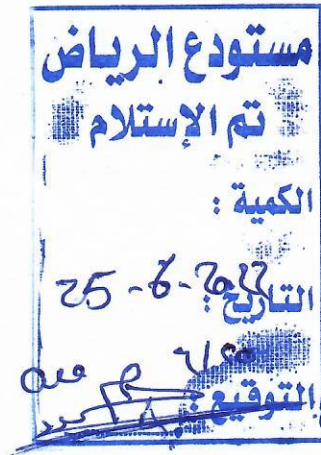 مستودع الرياض
تم الإستلام
الكمية :
التاريخ : 25-6-2022
التوقيع :